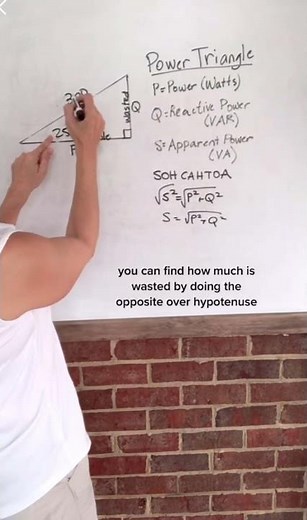 Power Triangle
P=Power (Watts)
Q=Reactive Power
(VAR)
S=Apparent Power
(VA)
SOH CAHTOA
√S²=√P²+Q²
S=√P²+Q²
wasted
Q
you can find how much is
wasted by doing the
opposite over hypotenuse